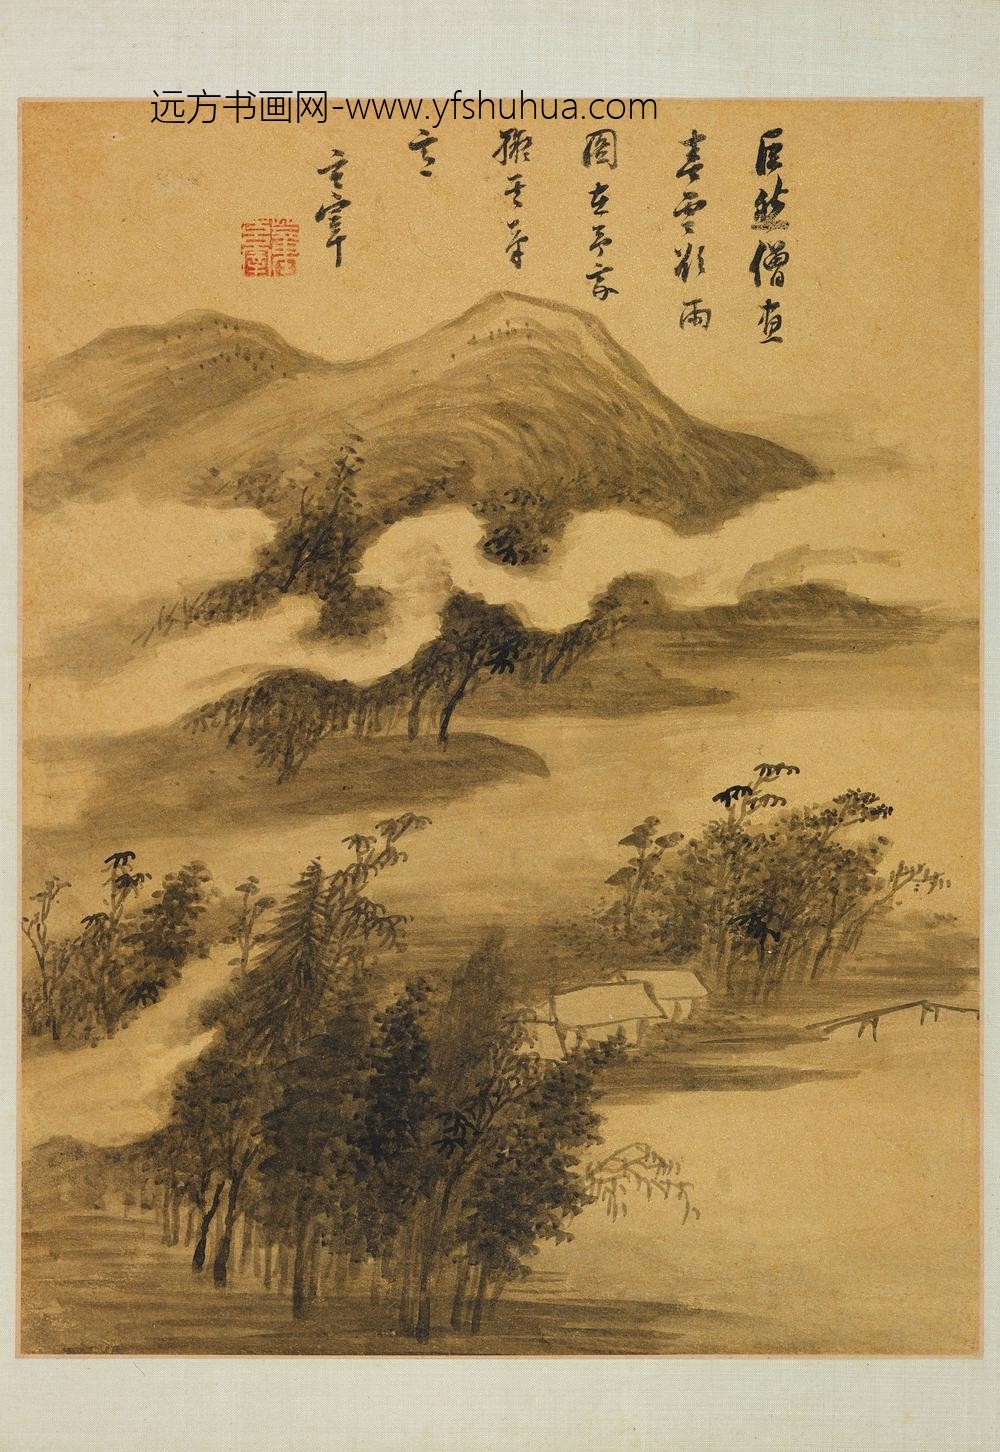 远方书画网-www.yfshuhua.com
巨然僧画
春云欲雨
图在予家
拟其笔
意
玄宰